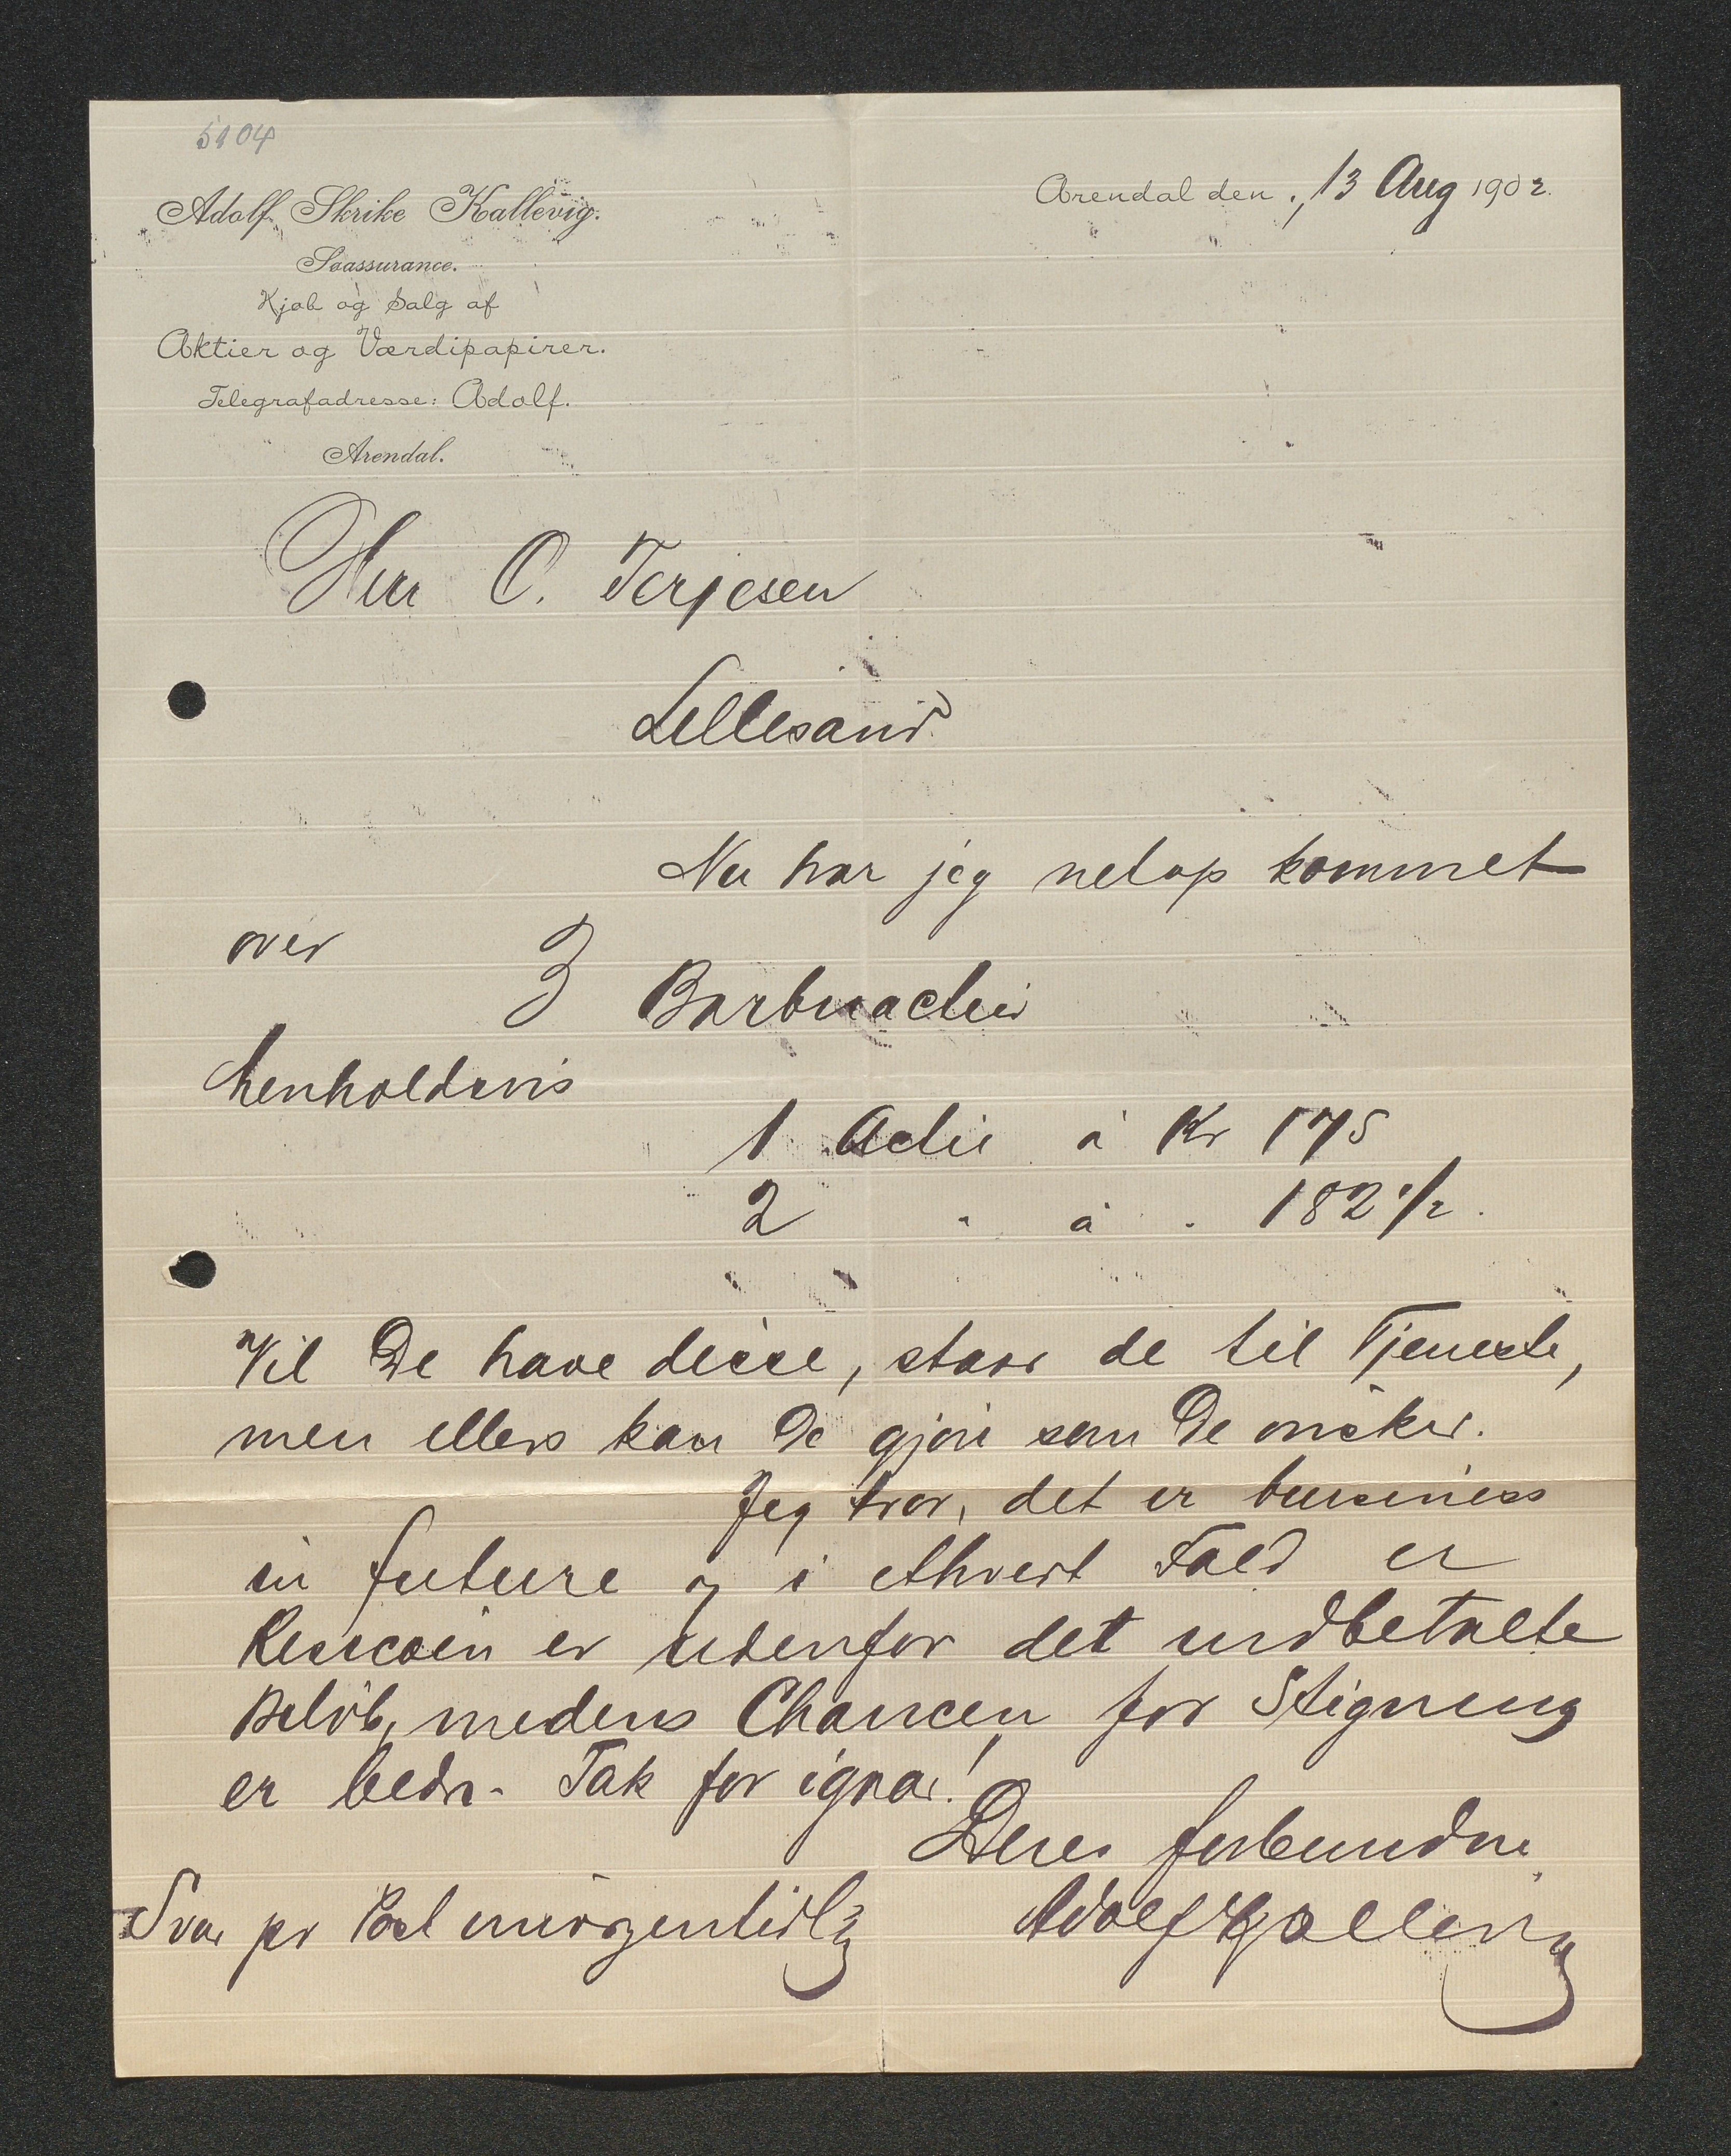 5104
Adolf Skrike Kallevig.
Søassurance.
Kjøb og Salg af
Aktier og Værdipapirer.
Telegrafadresse: Adolf.
Arendal.
Arendal den 13 Aug 1902.
Herr O. Terjesen
Lillesand
Nu har jeg netop kommet
over 3 Barbuactier
henholdsvis
1 Actie à Kr 175
2 " à " 182 1/2.
Vil De have disse, staar de til Tjeneste,
men ellers kan De gjöre som De önsker.
Jeg tror, det er bussiness
in future og i ethvert Fald er
er udenfor det indbetalte
Belöb, medens Chancen for Stigning
er bedre. Tak for igaar!
Deres forbundne
Adolf Kallevig
Svar pr Post morgentidlig